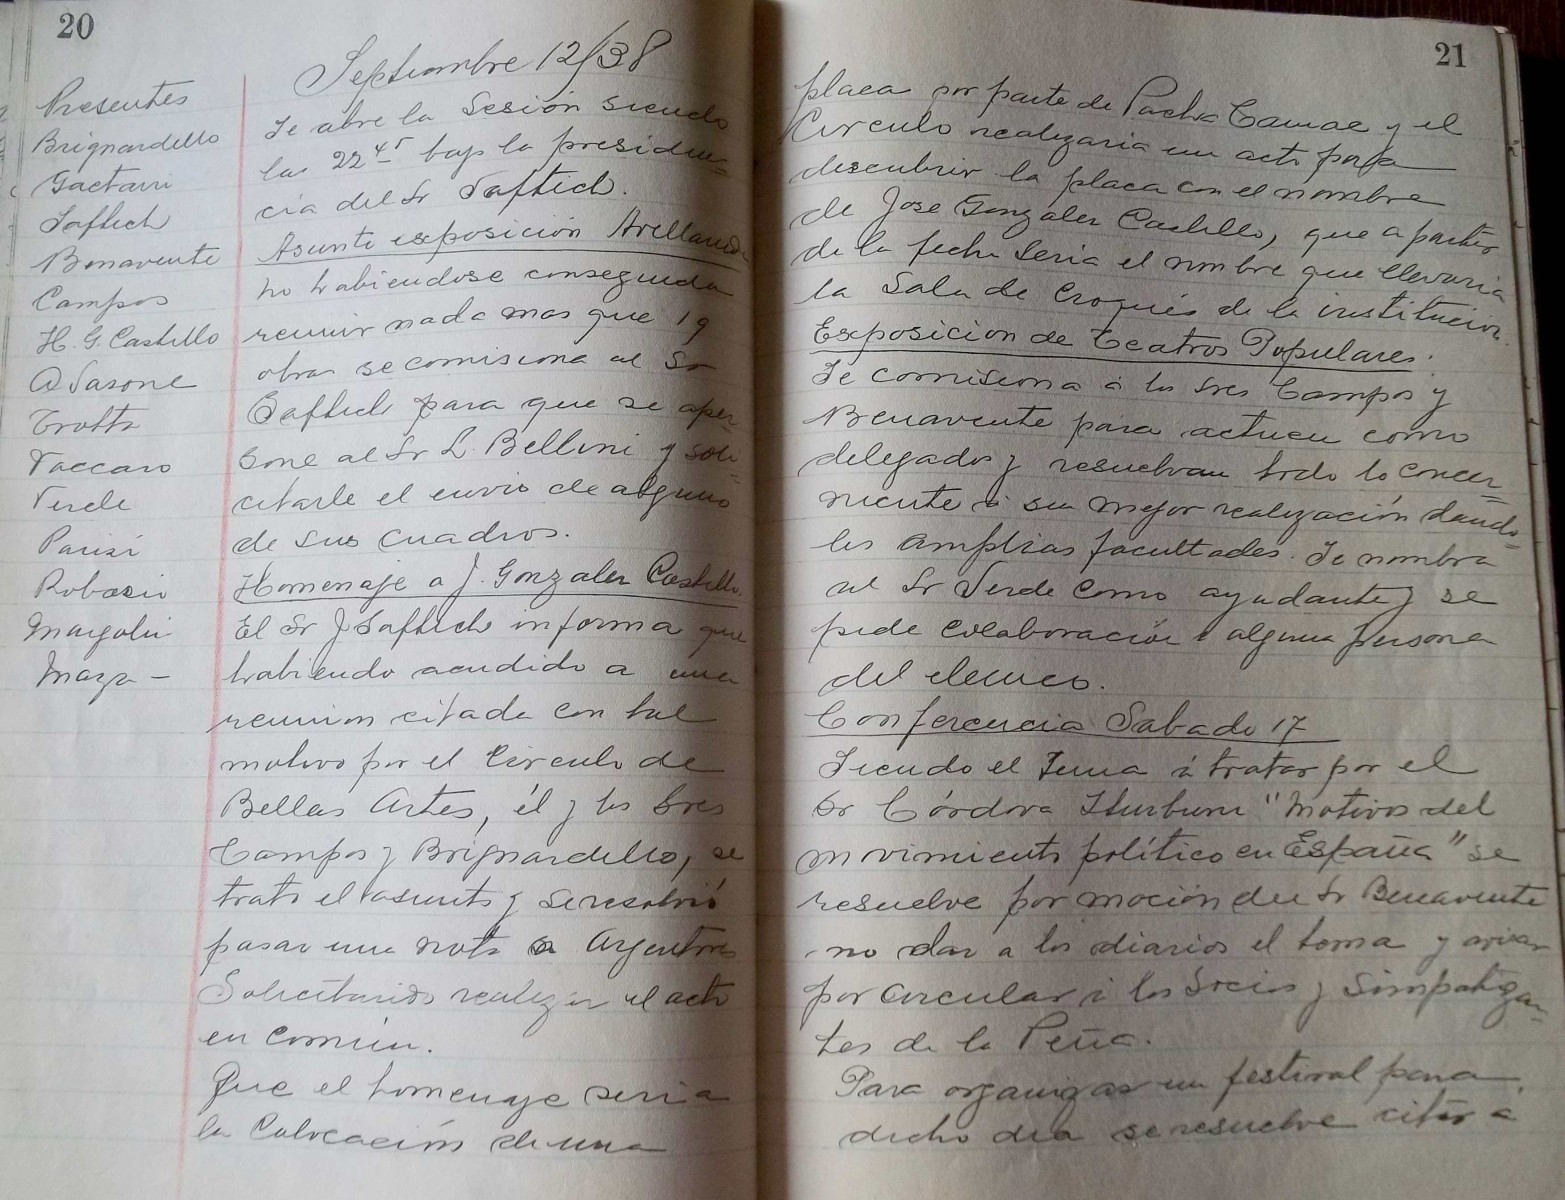 20
Septiembre 12/38
Presentes
Brignardello
Gaetani
Saftich
Bonavente
Campos
H. G. Castillo
A Sasone
Trotta
Vaccaro
Verde
Parisi
Robasio
Margolis
Maza -
Se abre la Sesión siendo
las 22 45 bajo la presiden=
cia del Sr Saftich.
Asunto exposición Avellaneda
no habiendose conseguido
reunir nada mas que 19
obras se comisiona al Sr
Saftich para que se aper=
sone al Sr L. Bellini y soli=
citarle el envio de alguno
de sus cuadros.
Homenaje a J. Gonzalez Castillo.
El Sr J Saftich informa que
habiendo acudido a una
reunion citada con tal
motivo por el Circulo de
Bellas Artes, él y los Sres
Campos y Brignardello, se
trato el asunto y se resolvió
pasar una nota a Argentores
Solicitando realizar el acto
en común.
Que el homenaje seria
la Colocación de una
21
placa por parte de Pacha Camac y el
Circulo realizaria un acto para
descubrir la placa con el nombre
de Jose Gonzalez Castillo, que a partir
de la fecha seria el nombre que llevaria
la Sala de Croquis de la institucion.
Exposicion de Teatros Populares.
Se comisiona a los Sres Campos y
Benavente para actuen como
delegados y resuelvan todo lo concer=
niente a su mejor realización dando=
les amplias facultades. Se nombra
al Sr Verde como ayudante y se
pide colaboración a alguna persona
del elenco.
Conferencia Sabado 17
Siendo el Tema á tratar por el
Sr Córdova Iturburu "Motivos del
movimiento político en España" se
resuelve por moción del Sr Benavente
no dar a los diarios el tema y avisar
por circular á los Socios y Simpatizan=
tes de la Peña.
Para organizar un festival para
dicho dia se resuelve citar a